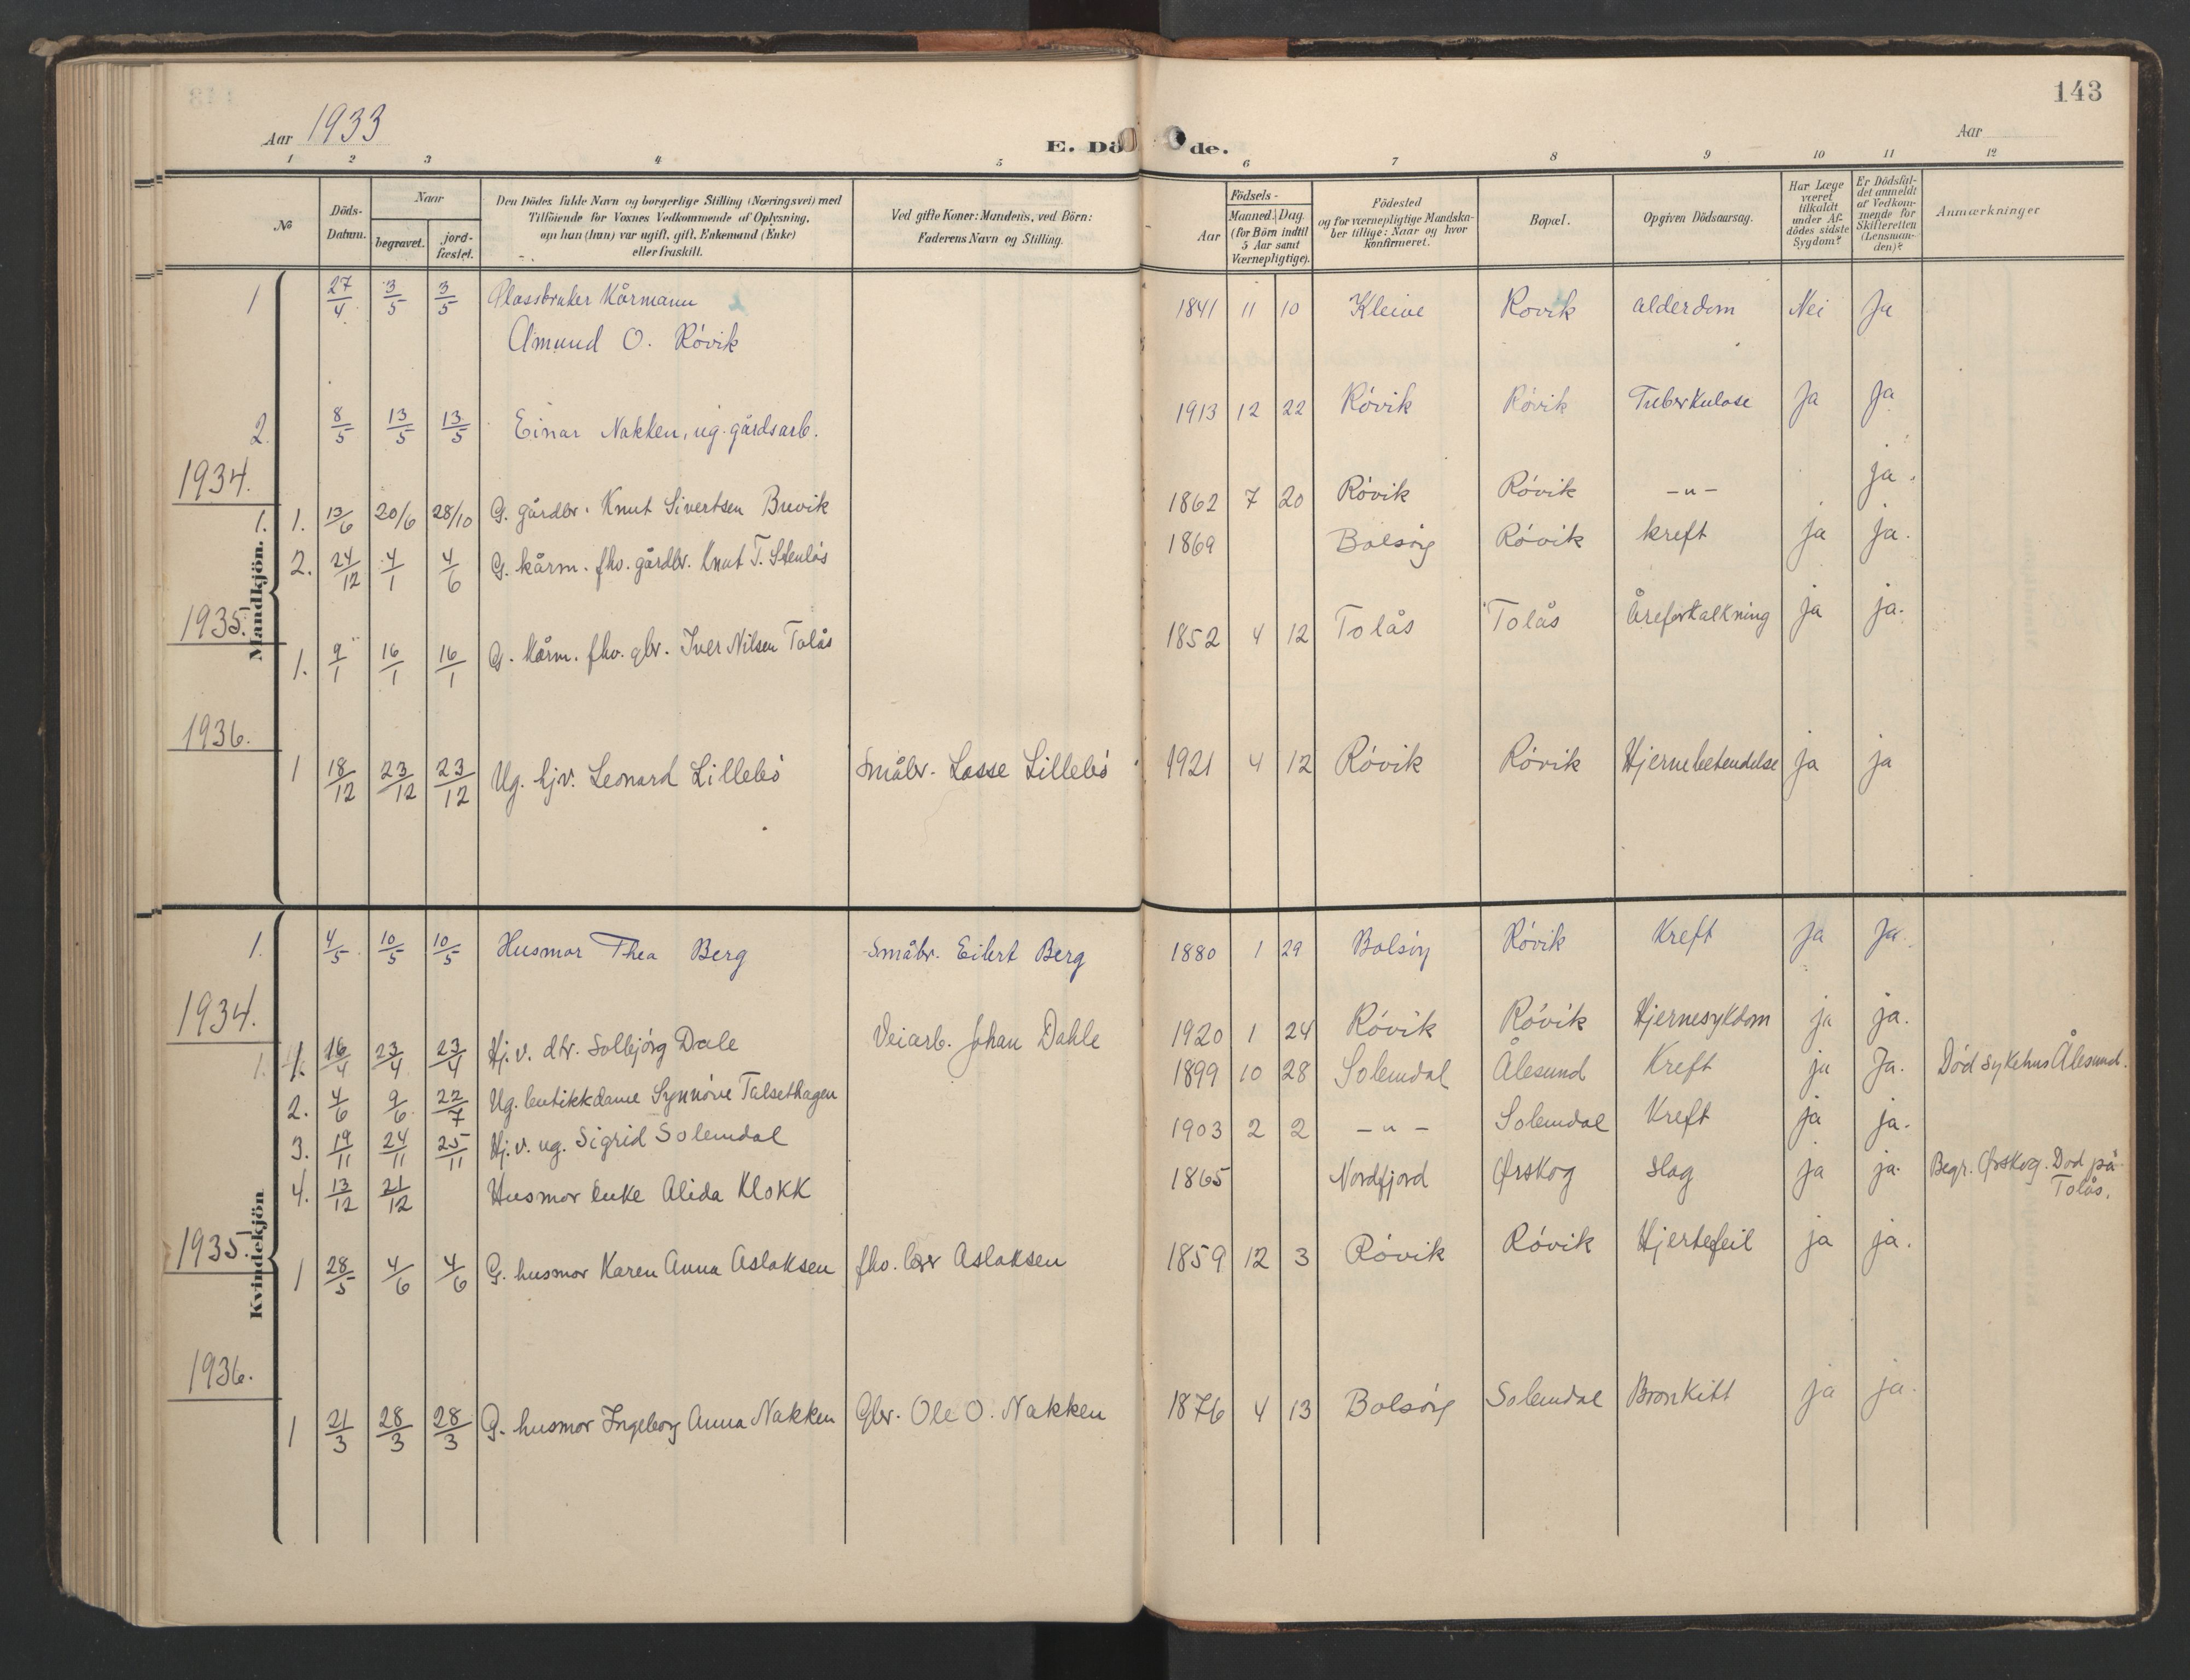 143
Aar 1933
E. Dö de.
Aar
1 2 3 4 5 6 7 8 9 10 11 12
№
Döds-Datum.
Naar
begravet.
jord-fæstet.
Den Dödes fulde Navn og borgerlige Stilling (Næringsvei) med
Tilföiende for Voxnes Vedkommende af Oplysning,
om han (hun) var ugift, gift, Enkemand (Enke)
eller fraskilt.
Ved gifte Koner: Mandens, ved Börn:
Faderens Navn og Stilling.
Födsels-
Aar
Maaned. Dag.
(for Börn indtil
5 Aar samt
Værnepligtige).
Födested
og for værnepligtige Mandska-
ber tillige: Naar og hvor
konfirmeret.
Bopæl.
Opgiven Dödsaarsag.
Har Læge
været
tilkaldt
under Af-
dödes sidste
Sygdom?
Er Dödsfal-
det anmeldt
af Vedkom-
mende for
Skifteretten
(Lensman-
den)?
Anmærkninger
Mandkjön.
1 27/4 3/5 3/5 Plassbruker Kårmann 1841 11 10 Kleive Rovik alderdom Nei Ja
Amund O. Róvik
2. 8/5 13/5 13/5 Einar Nakken, ug. gårdsarb. 1913 12 22 Róvik Róvik Tuberkulose Ja Ja
1934.
1. 1. 13/6 20/6 28/10 G. gårdbr. Knut Sivertsen Buvik 1862 7 20 Róvik Róvik -"- ja.
2. 24/12 4/1 4/6 G. kårm. fhv. gårdbr. Knut T. Stenlös 1869 Bolsóy Róvik kreft ja ja.
1935.
1. 9/1 16/1 16/1 G. kårm. fhv. gbr. Iver Nilsen Tolås 1852 4 12 Tolås Tolås Åreforkalkning ja ja.
1936.
1 18/12 23/12 23/12 Ug. hjv. Leonard Lillebó Småbr. Lasse Lillebó 1921 4 12 Róvik Róvik Hjernebetendelse ja ja
Kvindekjön
1. 4/5 10/5 10/5 Husmor Thea Berg Småbr. Eilert Berg 1880 1 29 Bolsóy Róvik Kreft Ja Ja.
1934.
1. 1. 16/4 23/4 23/4 Hj. v. dtr. Solbjórg Dale Veiarb. Johan Dahle 1920 1 24 Róvik Róvik Hjernesykdom ja ja.
2. 4/6 9/6 22/7 Ug. butikkdame Synnóve Talsethagen 1899 10 28 Solemdal Ålesund Kreft ja Ja. Dód sykehus Ålesund.
3. 19/11 24/11 25/11 Hj. v. ug. Sigrid Solemdal 1903 2 2 -"- Solemdal Kreft ja ja.
4. 13/12 21/12 Husmor enke Alida Klokk 1865 Nordfjord Ørskog Slag ja ja. Begr. Ørskog. Dod på
Tolås.
1935.
1 28/5 4/6 4/6 G. husmor Karen Anna Aslaksen fhv. Aslaksen 1859 12 3 Róvik Róvik Hjertefeil ja ja.
1936.
1 21/3 28/3 28/3 G. husmor Ingeborg Anna Nakken Gbr. Ole O. Nakken 1876 4 13 Bolsóy Solemdal Bronkitt ja ja.